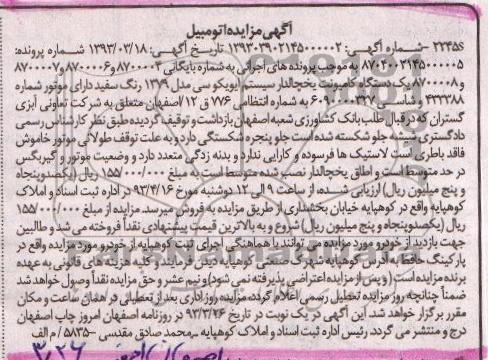 آگهی مزایده اتومبیل
۲۳۴۵۶ -شماره آگهی: ۱۳۹۳۰۳۹۰۲۱۴۵۰۰۰۰۰۲ تاریخ آگهی: ۱۳۹۳/۰۳/۱۸ شماره پرونده:
۸۷۰۴۰۰۲۱۴۵۰۰۰۰۰۵ به موجب پرونده های اجرائی به شماره بایگانی ۸۷۰۰۰۰۴ و ۸۷۰۰۰۰۶ و ۸۷۰۰۰۰۷
و ۸۷۰۰۰۰۸ یک دستگاه کامیونت یخچالدار سیستم ایویکو سی مدل ۱۳۷۹ رنگ سفید دارای موتور شماره
۴۳۳۳۸۸ و شاسی ۶۰۹۰۰۰۳۳۷ به شماره انتظامی ۷۷۶ ق ۱۲/اصفهان متعلق به شرکت تعاونی آبزی
گستران که در قبال طلب بانک کشاورزی شعبه اصفهان بازداشت و توقیف گردیده طبق نظر کارشناس رسمی
دادگستری شیشه جلو شکسته شده است جلو پنجره شکستگی دارد و به علت توقف طولانی موتور خاموش
فاقد باطری است لاستیک ها فرسوده و کارایی ندارد و بدنه زدگی متعدد دارد و وضعیت موتور و گیربکس
در حد متوسط است و اطاق یخچالدار نصب شده متوسط است به مبلغ ۱۵۵/۰۰۰/۰۰۰ ریال (یکصدوپنجاه
و پنج میلیون ریال) ارزیابی شده، از ساعت ۹ الی ۱۲ دوشنبه مورخ ۹۳/۴/۱۶ در اداره ثبت اسناد و املاک
کوهپایه واقع در کوهپایه خیابان بخشداری از طریق مزایده به فروش میرسد. مزایده از مبلغ ۱۵۵/۰۰۰/۰۰۰
ریال (یکصدوپنجاه و پنج میلیون ریال) شروع و به بالاترین قیمت پیشنهادی نقداً فروخته می شد و طالبین
جهت بازدید از خودرو مورد مزایده می توانند با هماهنگی اجرای ثبت کوهپایه از خودرو مورد مزایده واقع در
پارکینگ حافظ به آدرس کوهپایه شهرک صنعتی کوهپایه دیدن فرمایند و کلیه هزینه های قانونی به عهده
برنده مزایده است (و پس از مزایده اعتراضی پذیرفته نمی شود) و نیم عشر و حق مزایده نقداً وصول خواهد شد
ضمناً چنانچه روز مزایده تعطیل رسمی اعلام گردد مزایده روز اداری بعد از تعطیلی در همان ساعت و مکان
مقرر برگزار خواهد شد. این آگهی در یک نوبت در تاریخ ۹۳/۳/۲۶ در روزنامه اصفهان امروز چاپ اصفهان
درج و منتشر می گردد. رئیس اداره ثبت اسناد و املاک کوهپایه - محمد صادق مقدسی -۵۸۳۵/ م الف
۳/۲۶